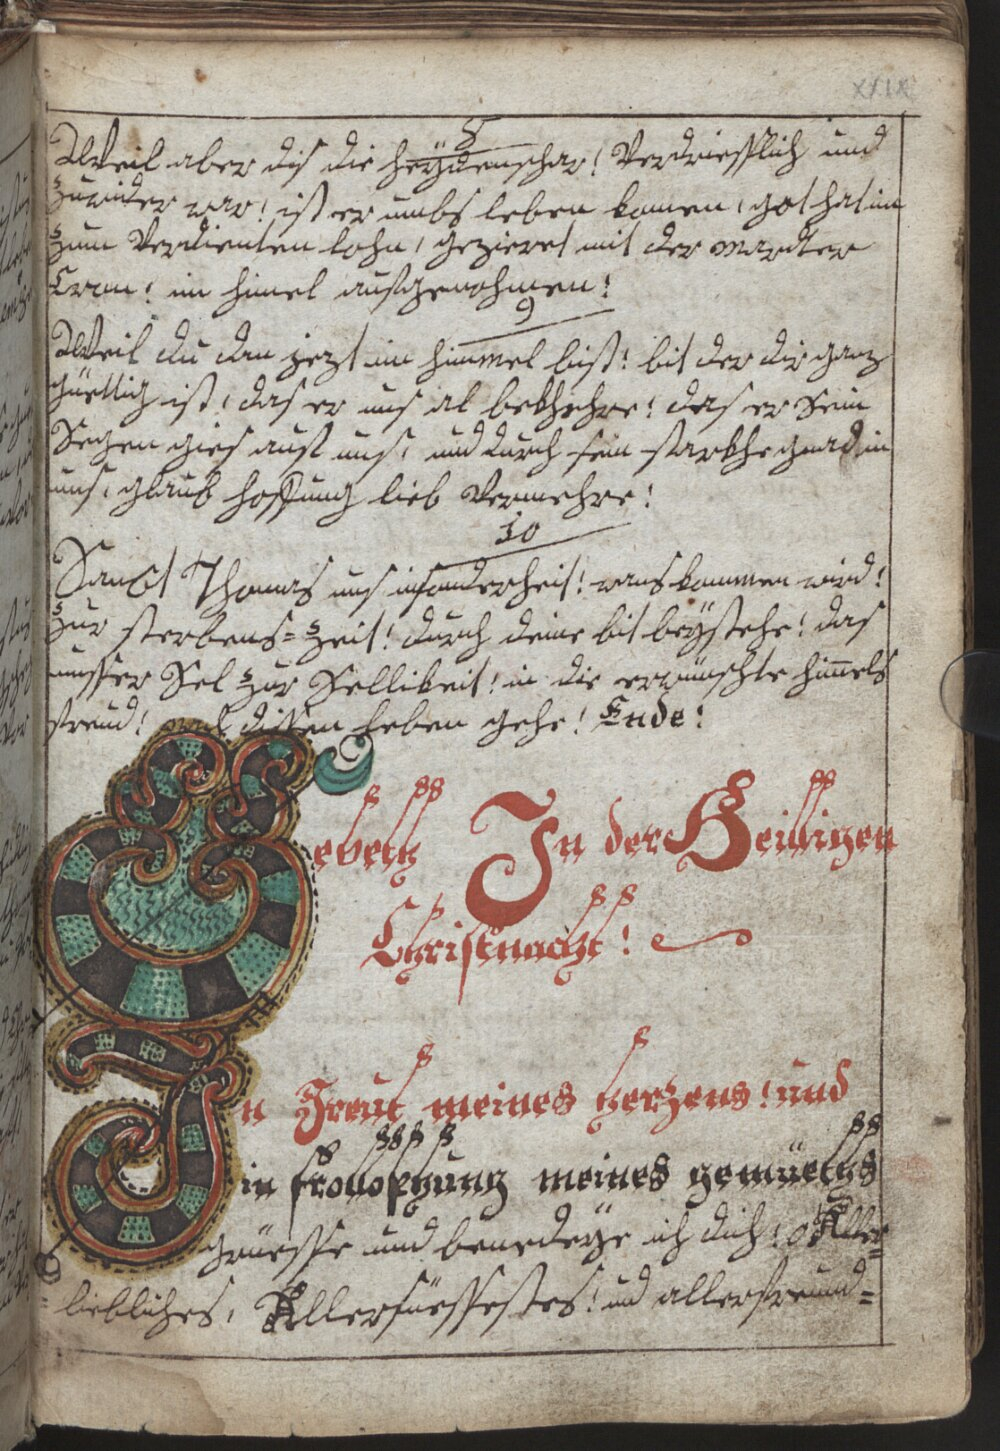 XXIX
8
Weil aber dis die heÿdenschar! Verdriesslich und
zuwider war! ist er umbs leben komen, got hat im
zum Verdienten lohn, gezieret mit der Mardter
Cron! im himel aufgenohmen!
9
Weil du dan jezt im himmel bist! bit der dir ganz
güettig ist, das er uns al bekhehre! das er Sein
Segen gies aus uns, und durch sein starkhe gnad in
uns, glaub hoffnung lieb Vermehre!
10
Sanct Thomas uns insonderheit! wans kommen wird!
zur sterbens=zeit! durch deine bit beÿstehe! das
unsser Sel zur Selligkeit! in die erwünschte himels
freud! aus dissen Leben gehe! Ende!
Gebett In der Heilligen
Christnacht!
In Freut meines herzens! und
in frolopfhung meines gemüeths
grüesse und benedeÿe ich dich! o Aller=
liebliches, Allersüessestes! und allerfreund=